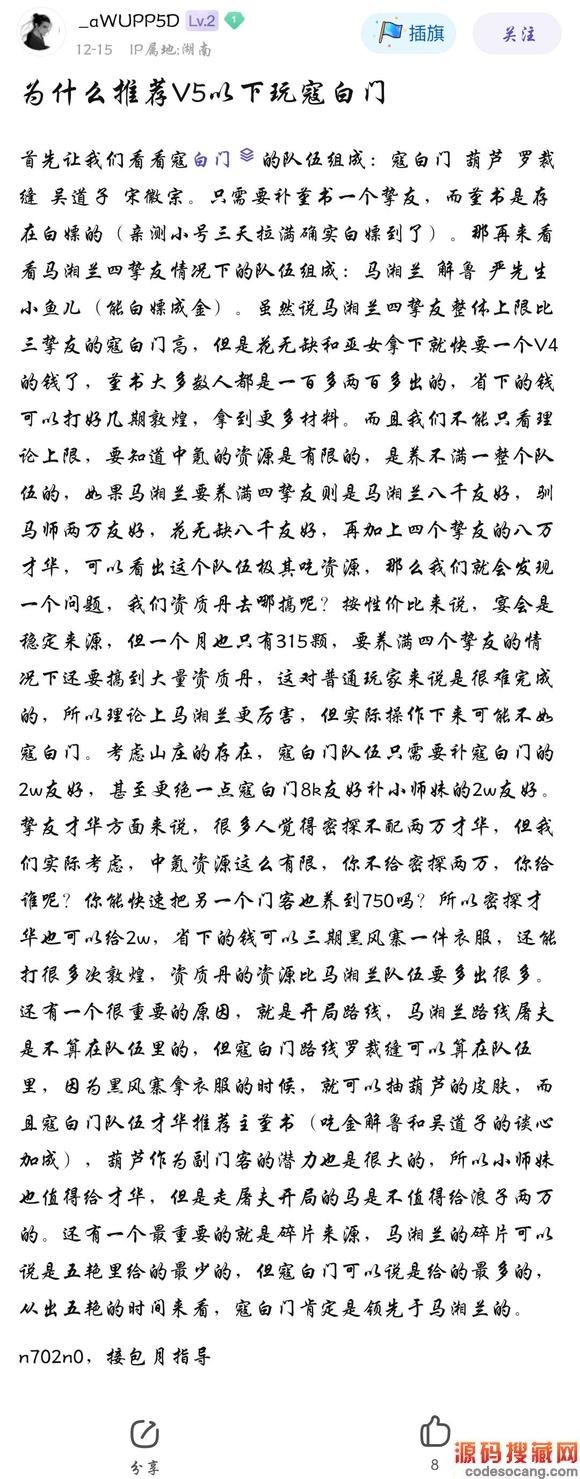 _aWUPP5D Lv.2 1
插旗
关注
12-15 IP属地:湖南
为什么推荐V5以下玩寇白门
首先让我们看看寇白门 的队伍组成：寇白门 葫芦 罗裁
缝 吴道子 宋徽宗。只需要补董书一个挚友，而董书是存
在白嫖的（亲测小号三天拉满确实白嫖到了）。那再来看
看马湘兰四挚友情况下的队伍组成：马湘兰 解鲁 严先生
小鱼儿（能白嫖成金）。虽然说马湘兰四挚友整体上限比
三挚友的寇白门高，但是花无缺和巫女拿下就快要一个V4
的钱了，董书大多数人都是一百多两百多出的，省下的钱
可以打好几期敦煌，拿到更多材料。而且我们不能只看理
论上限，要知道中氪的资源是有限的，是养不满一整个队
伍的，如果马湘兰要养满四挚友则是马湘兰八千友好，驯
马师两万友好，花无缺八千友好，再加上四个挚友的八万
才华，可以看出这个队伍极其吃资源，那么我们就会发现
一个问题，我们资质丹去哪搞呢？按性价比来说，宴会是
稳定来源，但一个月也只有315颗，要养满四个挚友的情
况下还要搞到大量资质丹，这对普通玩家来说是很难完成
的，所以理论上马湘兰更厉害，但实际操作下来可能不如
寇白门。考虑山庄的存在，寇白门队伍只需要补寇白门的
2w友好，甚至更绝一点寇白门8k友好补小师妹的2w友好。
挚友才华方面来说，很多人觉得密探不配两万才华，但我
们实际考虑，中氪资源这么有限，你不给密探两万，你给
谁呢？你能快速把另一个门客也养到750吗？所以密探才
华也可以给2w，省下的钱可以三期黑风寨一件衣服，还能
打很多次敦煌，资质丹的资源比马湘兰队伍要多出很多。
还有一个很重要的原因，就是开局路线，马湘兰路线屠夫
是不算在队伍里的，但寇白门路线罗裁缝可以算在队伍
里，因为黑风寨拿衣服的时候，就可以抽葫芦的皮肤，而
且寇白门队伍才华推荐主董书（吃金解鲁和吴道子的谈心
加成），葫芦作为副门客的潜力也是很大的，所以小师妹
也值得给才华，但是走屠夫开局的马是不值得给浪子两万
的。还有一个最重要的就是碎片来源，马湘兰的碎片可以
说是五艳里给的最少的，但寇白门可以说是给的最多的，
从出五艳的时间来看，寇白门肯定是领先于马湘兰的。
n702n0，接包月指导
分享
8
源码搜藏网
codesocang.com